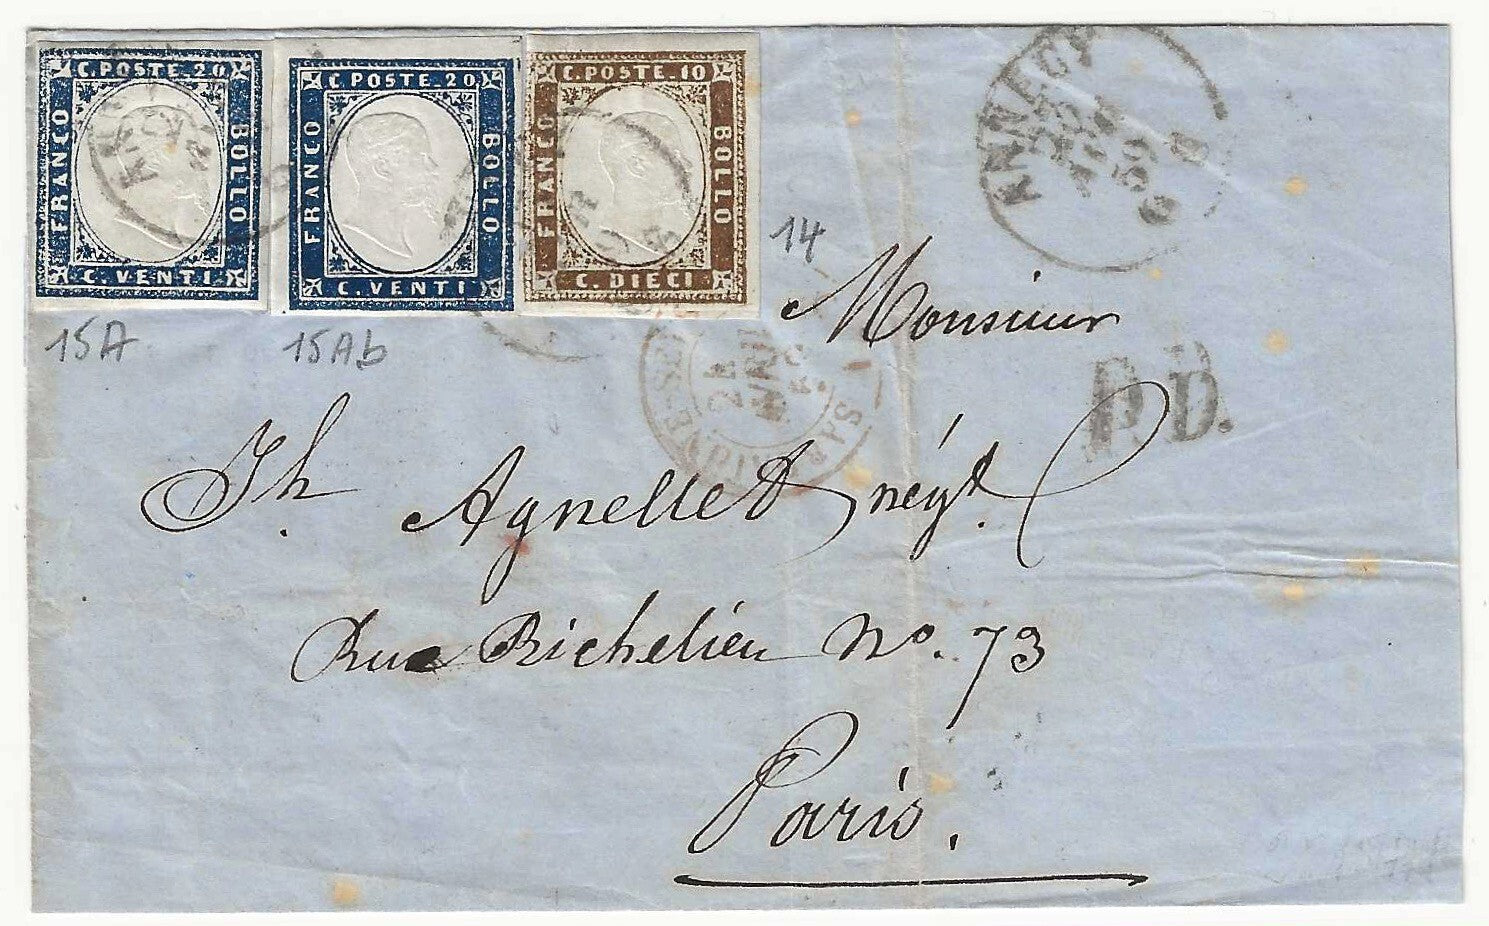 C. POSTE. 20
FRANCO
BOLLO
C. VENTI
C. POSTE. 20
FRANCO
BOLLO
C. VENTI
C. POSTE. 10
FRANCO
BOLLO
C. DIECI
15A
15Ab
14
ANNECY
59
24
SARDAIGNE
P.D.
Monsieur
Jh Agnellet négt.
Rue Richelieu No. 73
Paris.